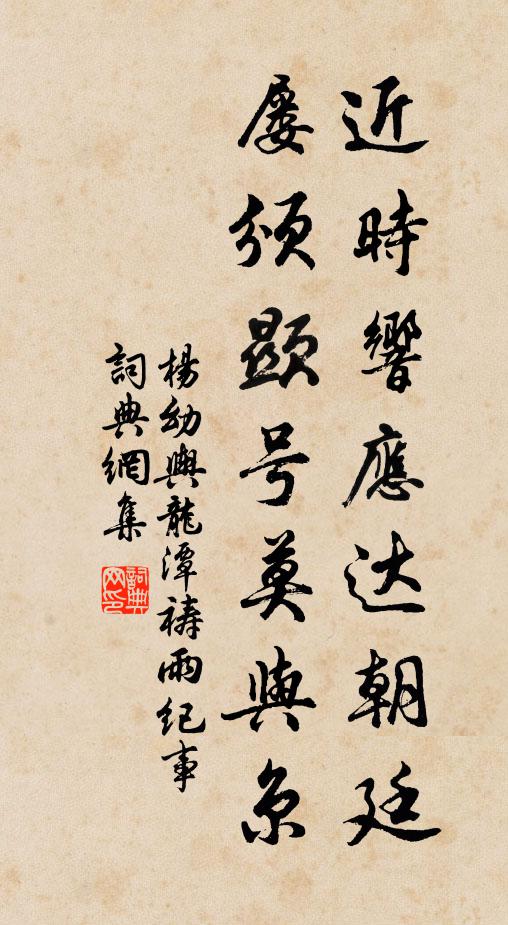 近時響應达朝廷
屡须顯号莫與京
楊幼輿龍潭禱雨纪事
詞典網集
詞典网印